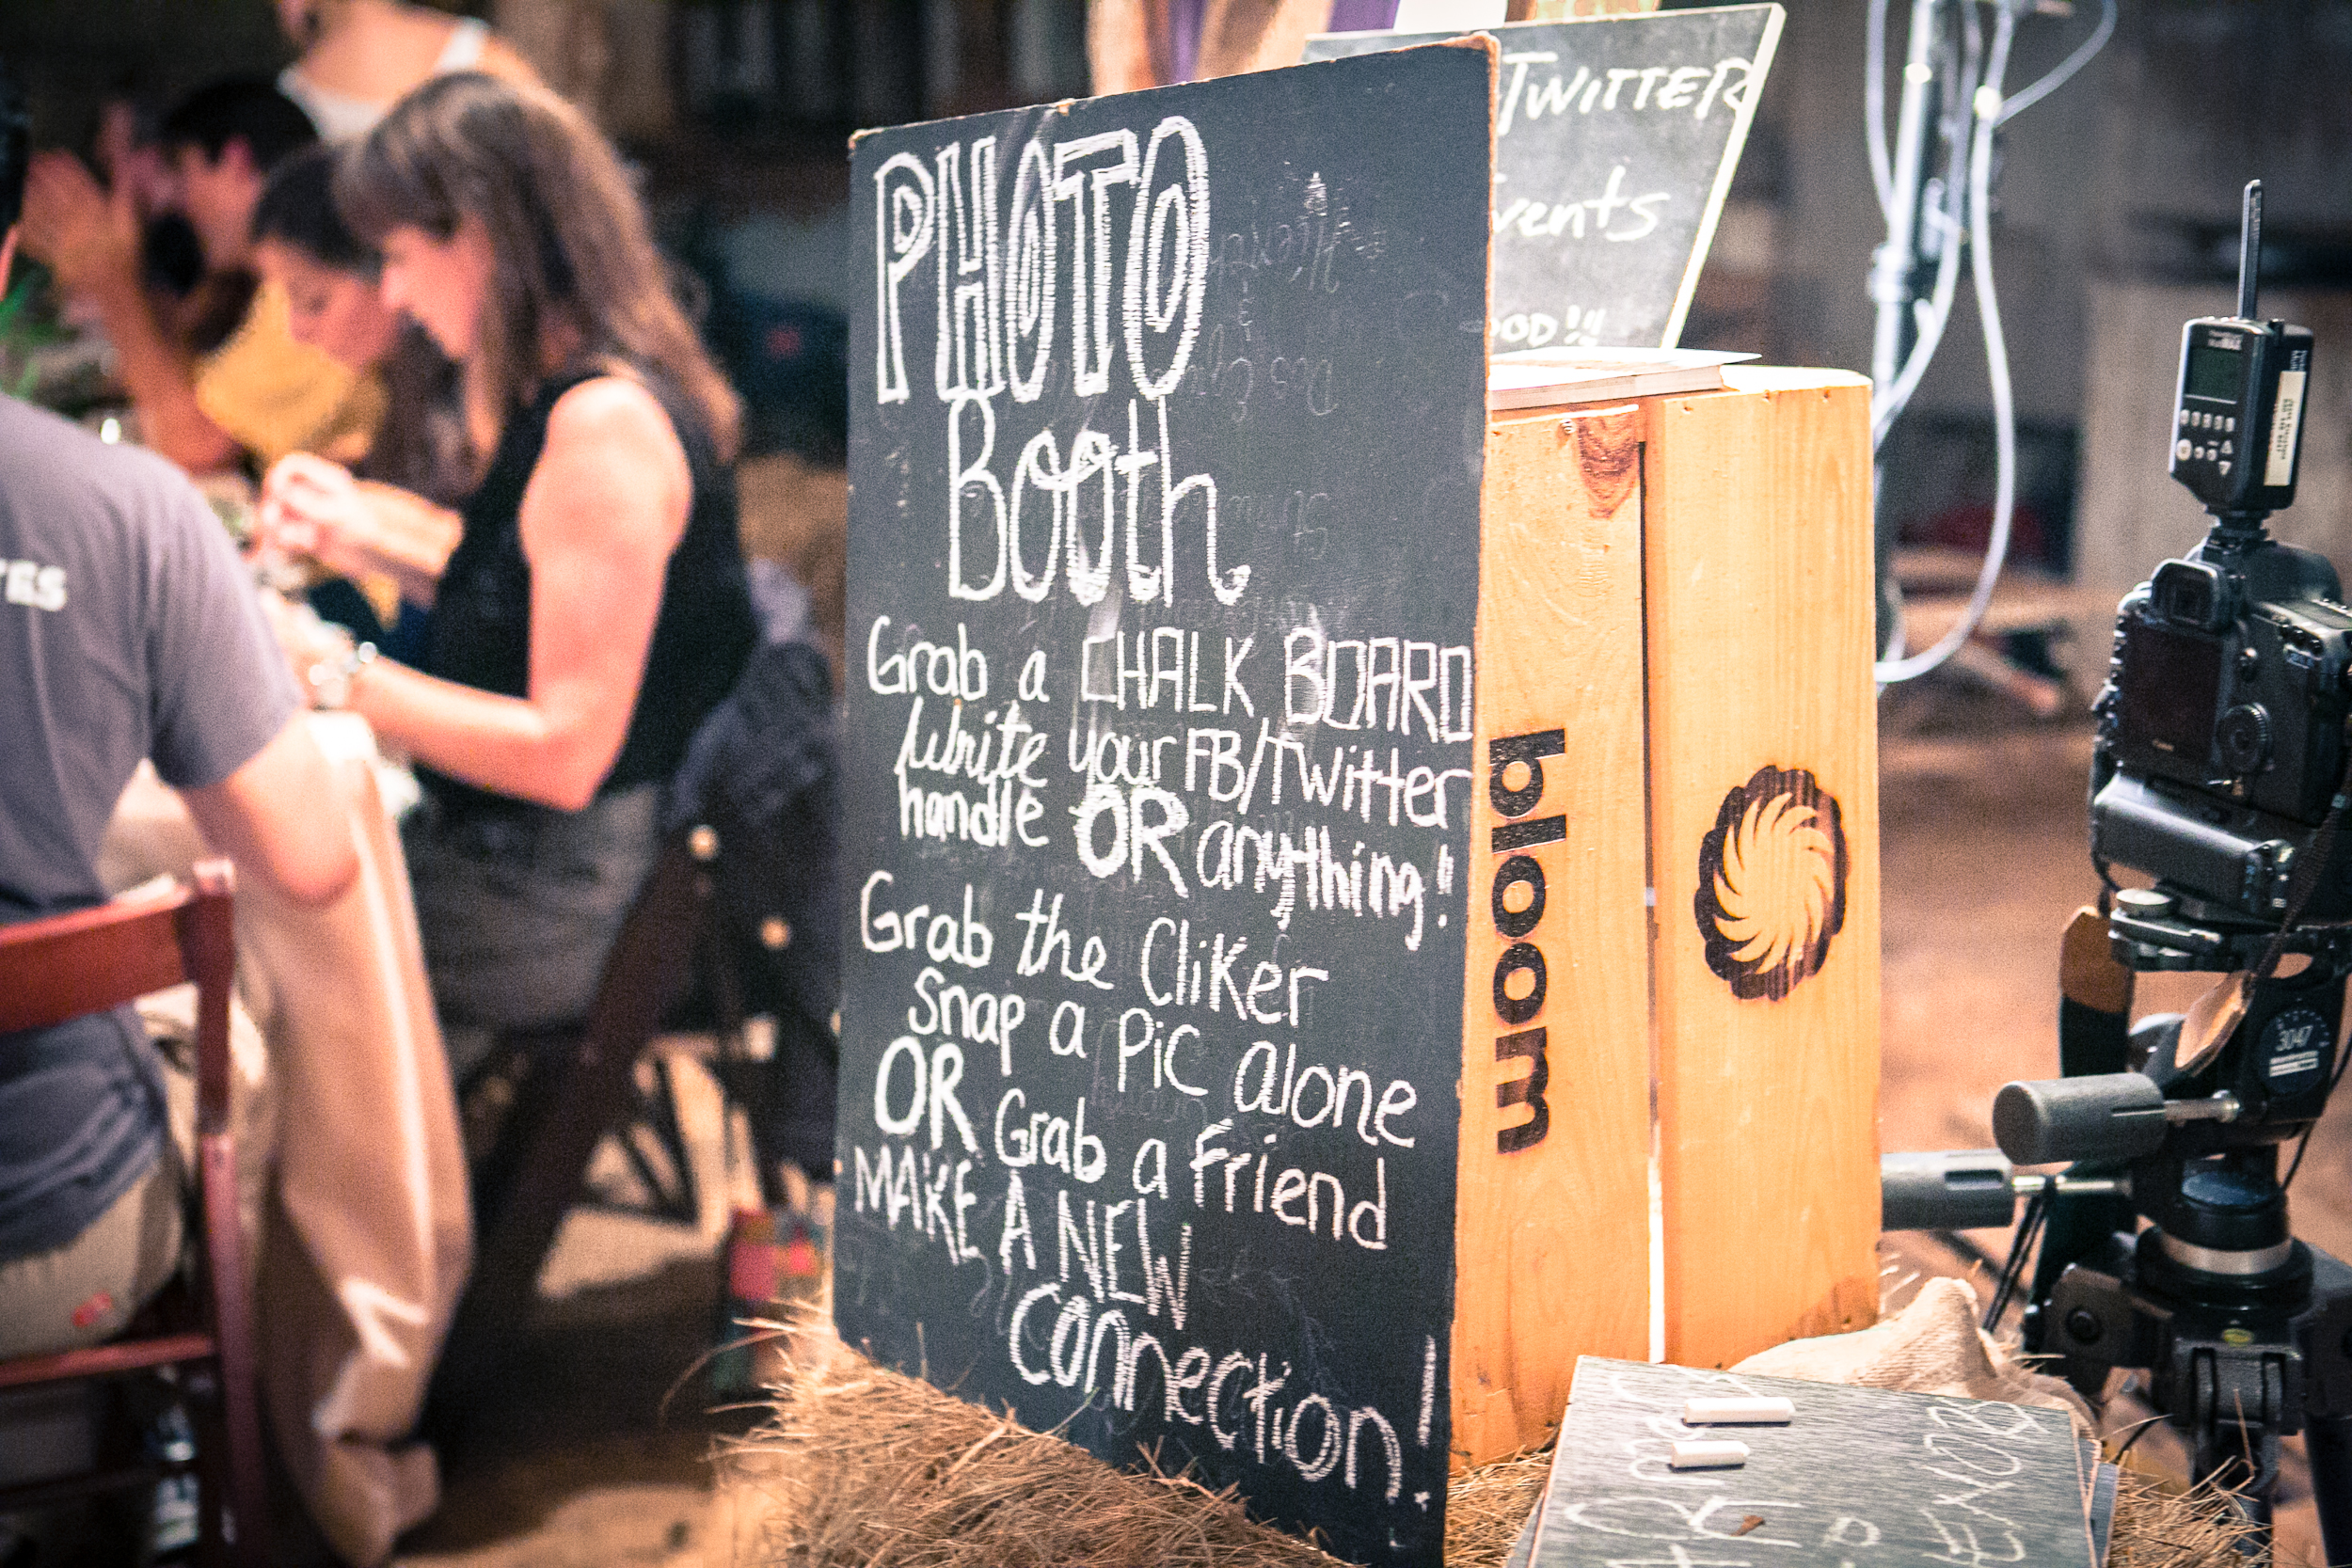 PHOTO
Booth
Grab a CHALK BOARD
Write your FB/Twitter
handle OR anything!
Grab the Cliker
Snap a Pic alone
OR Grab a friend
MAKE A NEW
Connection!
TWITTER
OOD!!!
bloom
3047
Canon